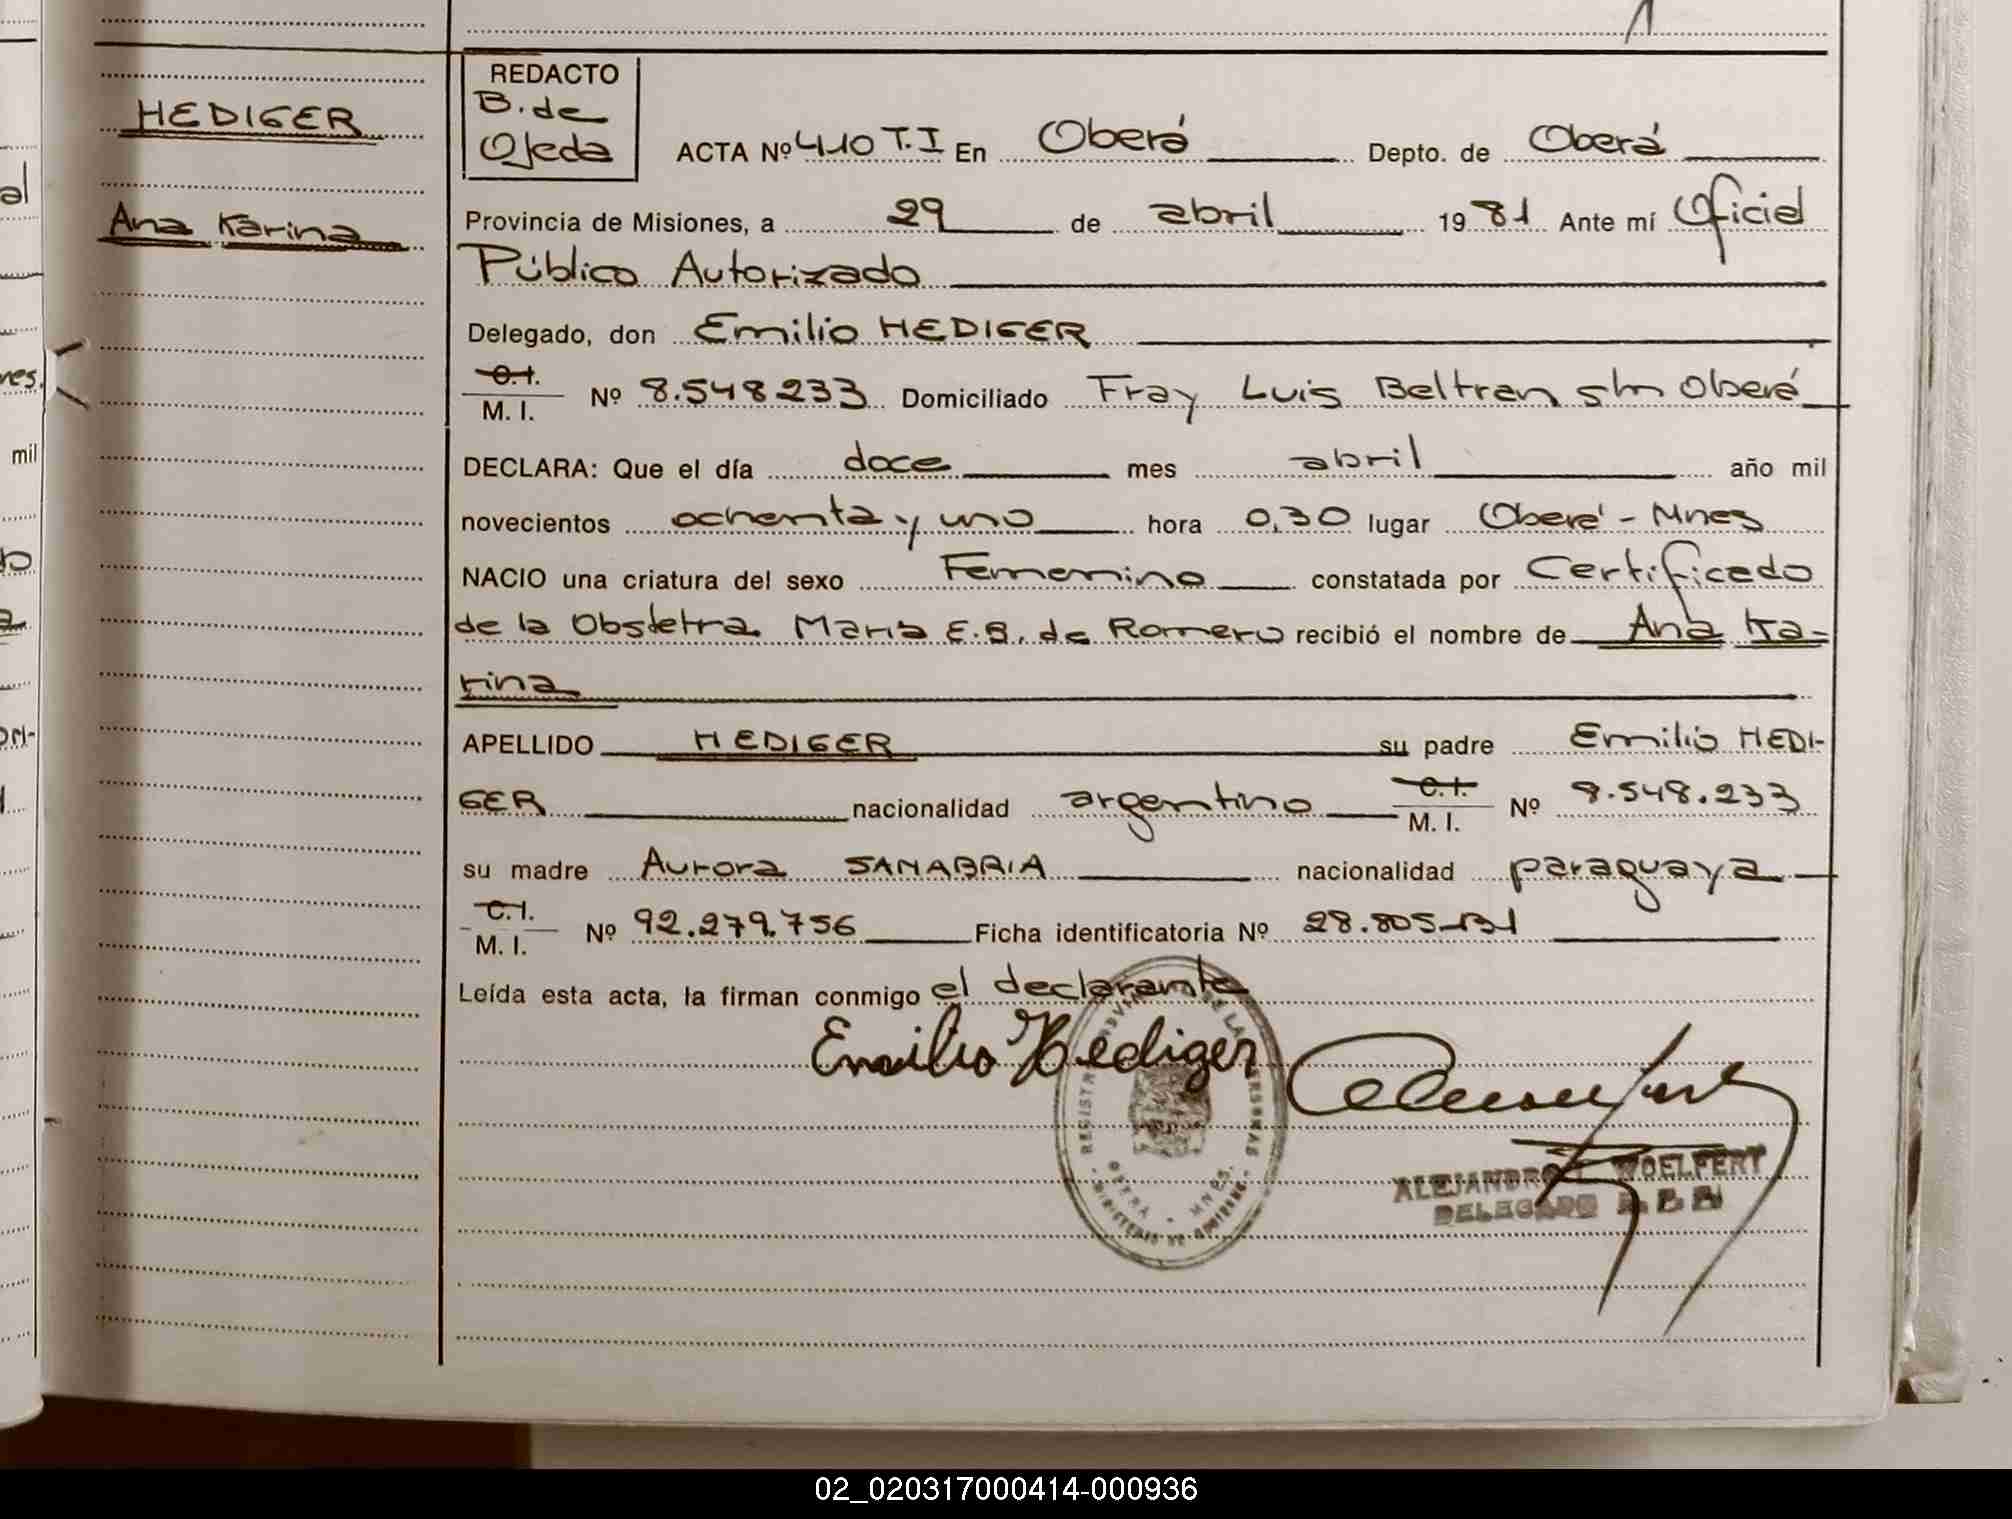 HEDIGER
Ana Karina
REDACTO
B. de
Ojeda
ACTA Nº 410 T.I En Oberá Depto. de Oberá
Provincia de Misiones, a 29 de abril 1981 Ante mí Oficial
Público Autorizado
Delegado, don Emilio HEDIGER
C.I.
M. I. Nº 8.548.233 Domiciliado Fray Luis Beltran s/n Oberá
DECLARA: Que el día doce mes abril año mil
novecientos ochenta y uno hora 0,30 lugar Oberá - Mnes
NACIO una criatura del sexo Femenino constatada por Certificado
de la Obstetra Maria E.B. de Romero recibió el nombre de Ana Ka-
rina
APELLIDO HEDIGER su padre Emilio HEDI-
GER nacionalidad argentino C.I. M. I. Nº 8.548.233
su madre Aurora SANABRIA nacionalidad paraguaya
C.I.
M. I. Nº 92.279.756 Ficha identificatoria Nº 28.805.131
Leída esta acta, la firman conmigo el declarante
Emilio Hediger
ALEJANDRO WOELFERT
DELEGADO
al
res.
mil
02_020317000414-000936